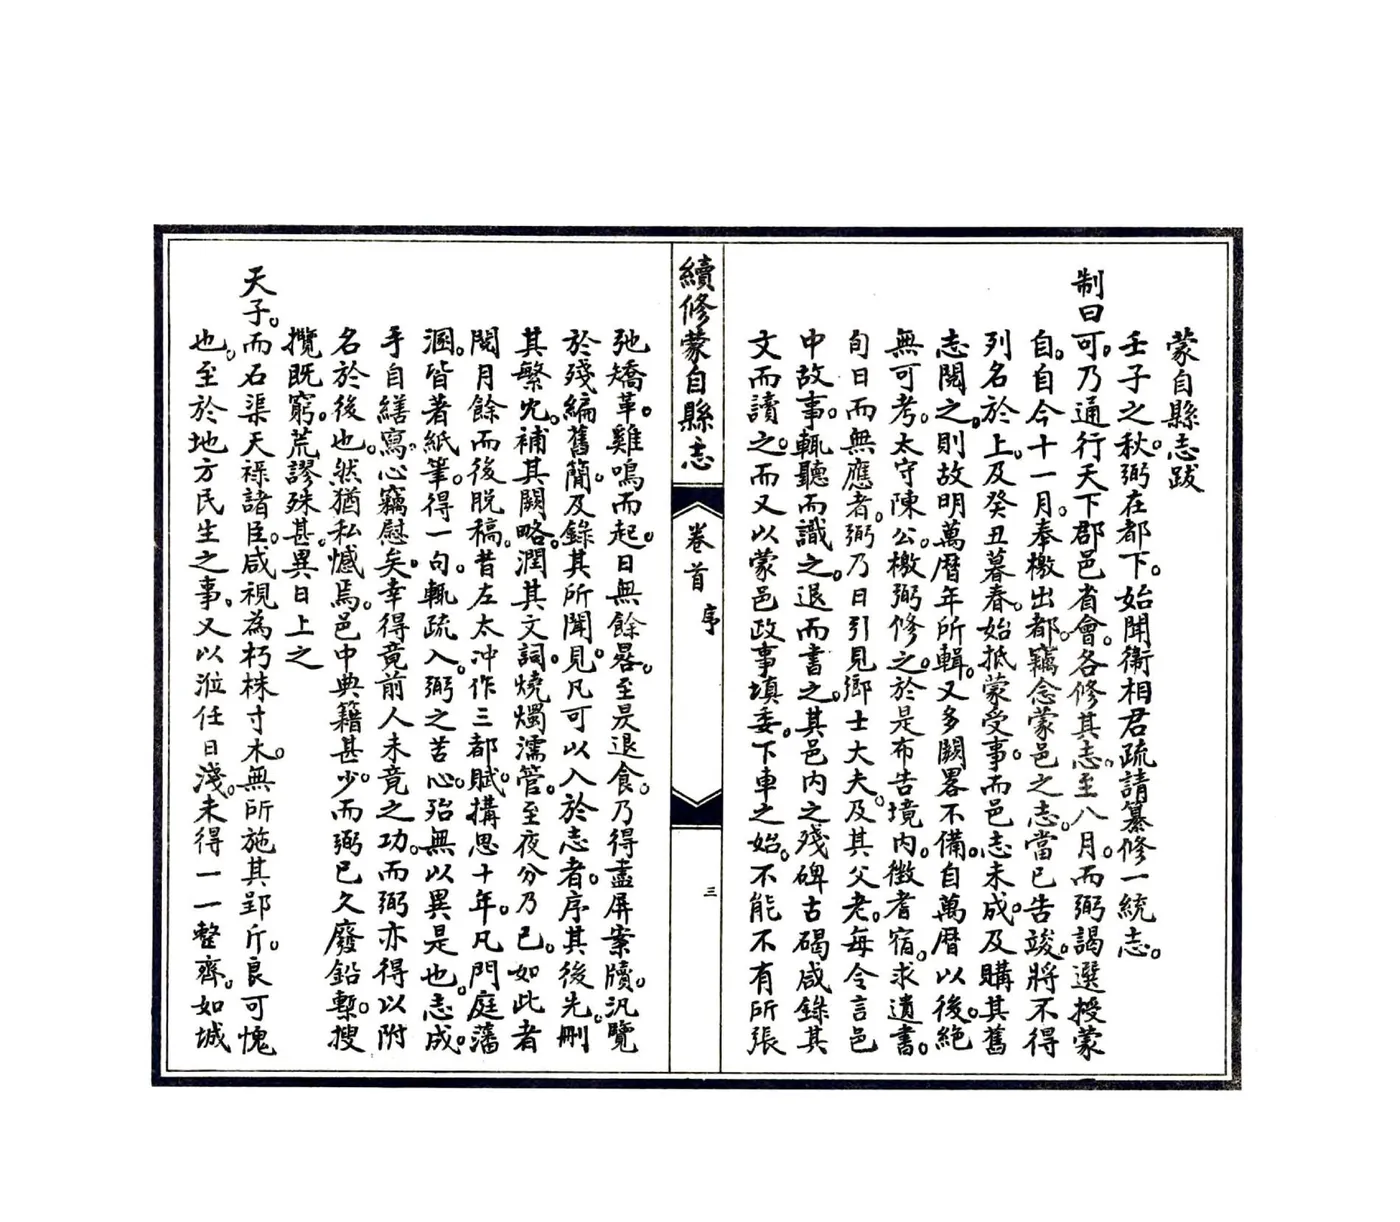 蒙自縣志跋
壬子之秋。弼在都下。始聞衛相君疏請纂修一統志。
制曰可。乃通行天下郡邑省會。各修其志。至八月。而弼謁選授蒙
自。自今十一月。奉檄出都。竊念蒙邑之志。當已告竣。將不得
列名於上。及癸丑暮春。始抵蒙受事。而邑志未成。及購其舊
志閱之。則故明萬曆年所輯。又多闕畧不備。自萬曆以後。絕
無可考。太守陳公。檄弼修之。於是布告境內。徵耆宿。求遺書。
旬日而無應者。弼乃日引見鄉士大夫。及其父老。每令言邑
中故事。輒聽而識之。退而書之。其邑內之殘碑古碣咸錄其
文而讀之。而又以蒙邑政事填委。下車之始。不能不有所張
續修蒙自縣志
卷首
序
三
弛矯革。雞鳴而起。日無餘晷。至是退食。乃得盡屏案牘。汎覽
於殘編舊簡。及錄其所聞見。凡可以入於志者。序其後先。刪
其繁冗。補其闕略。潤其文詞。燒燭濡管。至夜分乃已。如此者
閱月餘而後脫稿。昔左太冲作三都賦。搆思十年。凡門庭藩
溷。皆著紙筆。得一句。輒疏入。弼之苦心。殆無以異是也。志成。
手自繕寫。心竊慰矣。幸得竟前人未竟之功。而弼亦得以附
名於後也。然猶私憾焉。邑中典籍甚少。而弼已久廢鉛槧。搜
攬既窮。荒謬殊甚。異日上之
天子。而石渠天祿諸臣。咸視為朽株寸木。無所施其郢斤。良可愧
也。至於地方民生之事。又以涖任日淺。未得一一整齊。如城